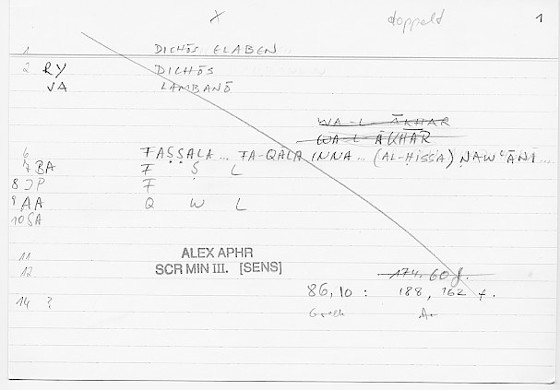 x doppelt 1
1 DICHŌS ELABEN
2 RY DICHŌS
VA LAMBANŌ
WA-L-ĀKHAR
WA-L-ĀKHAR
6 FAṢṢALA... FA-QALA INNA... (AL-ḤISSA) NAWʿĀNI...
7 BA F Ṣ L
8 JP F
9 AA Q W L
10 SA
11 ALEX APHR
12 SCR MIN III. [SENS] 174, 60 f.
86,10 : 188, 162 f.
14 ? Griech Ar